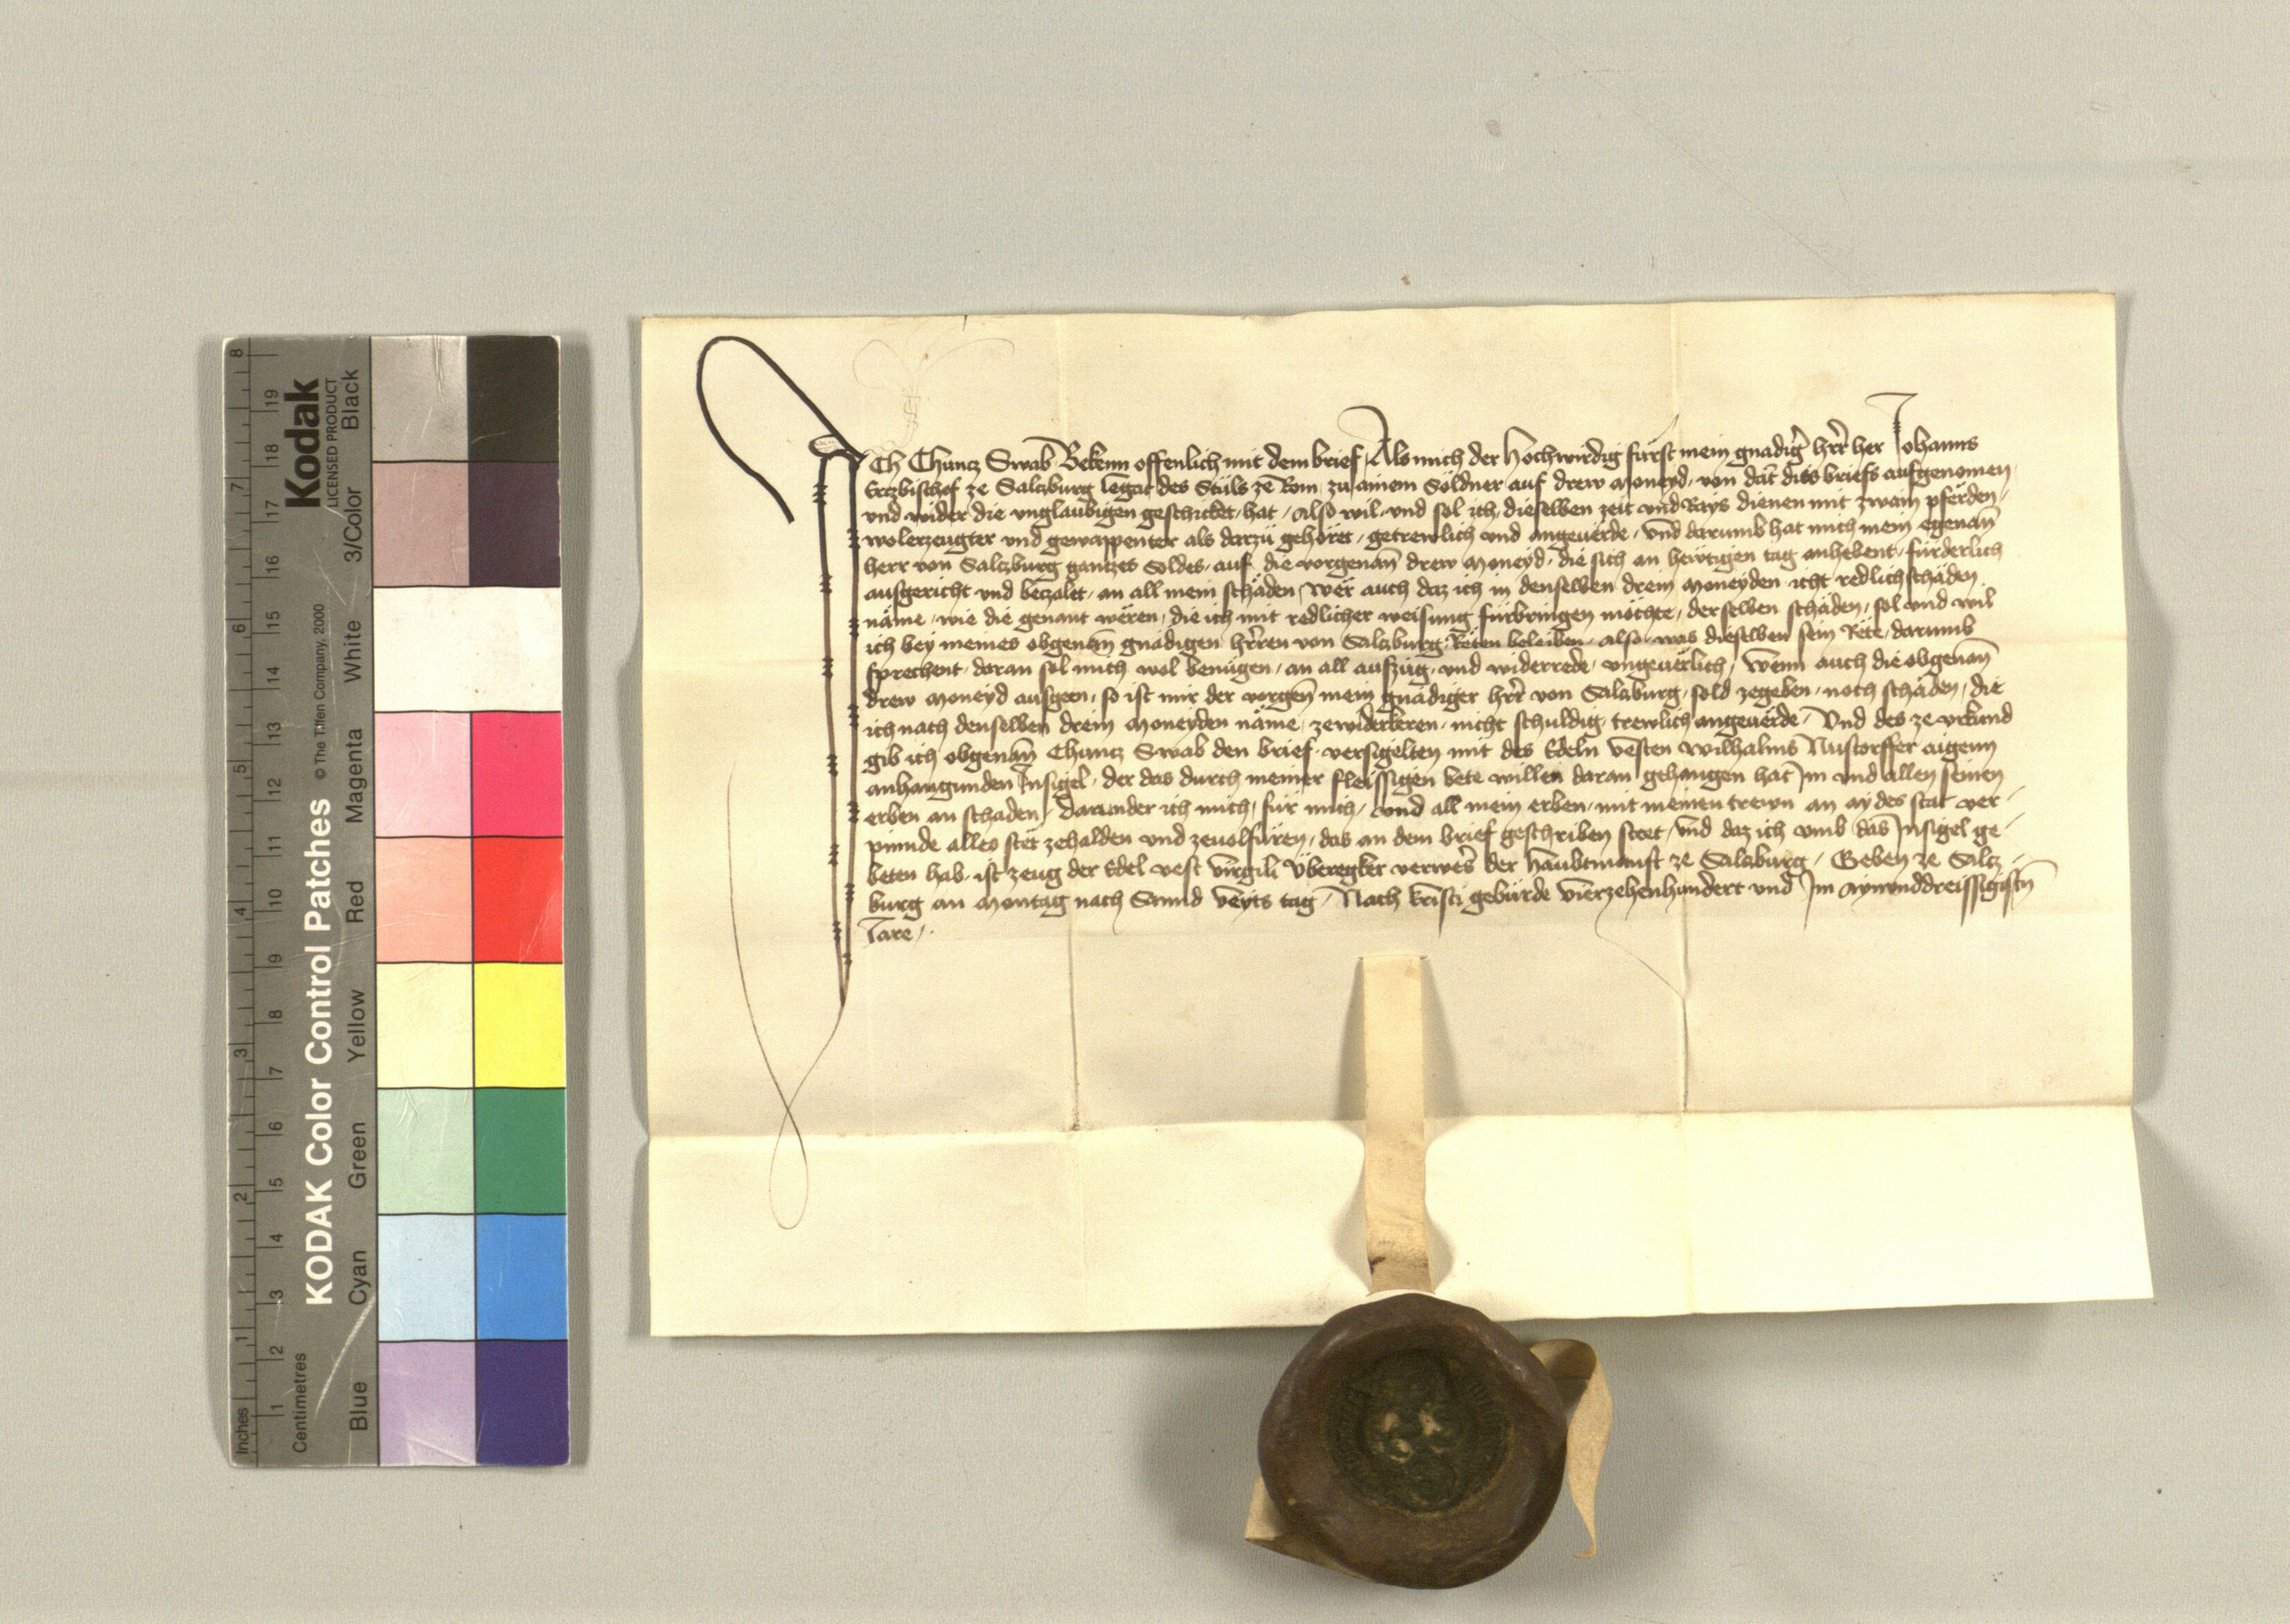 Ich Chuncz Swab Bekenn offenlich mit dem brief, Als mich der Hochwirdig fürst mein gnadigr̄ hr̄r her Johanns
Erczbischof ze Salczburg legat des Stůls ze Rom, zu ainem Söldner auf drew moneyd, von dāt dits briefs aufgenomen,
vnd wider die vnglaubigen geschicket hat, Also wil vnd sol ich, dieselben zeit vnd Rays dienen mit zwain pferden,
wolerzeugter vnd gewappenter als darzů gehöret, getrewlich vnd angeuërde, vnd darumb hat mich mein egenan̄
herr von Salczburg gantzes Soldes, auf die vorgenan̄ drew moneyd, die sich an hewtigen tag anhebent, fürderlich
ausgericht vnd beczalet, an all mein schäden, Wër auch daz ich in denselben drein moneyden icht redlich schäden
näme, wie die genant wëren, die ich mit redlicher weisung fürbringen möchte, derselben schäden, sol vnd wil
ich bey meines obgenan̄ gnadigen hr̄ren von Salczburg Rëten beleiben, also was dieselben sein Rëte, darumb
sprechent, daran sol mich wol benügen, an all aufzüg, vnd widerrede, vngeuërlich, Wenn auch die obgenan̄
drew moneyd ausgeen, so ist mir der vorgen̄ mein gnädiger hr̄r von Salczburg, sold zegeben, noch schäden, die
ich nach denselben drein moneyden näme, zewiderkeren, nicht schuldig, trewlich angeuërde, Vnd des ze vrkund
gib ich obgenan̄ Chuncz Swab den brief, versigelten mit des Edeln vesten Wilhalms Nustorffer aigenn
anhangunden Insigel, der das durch meiner fleissigen bete willen daran gehangen hat Im vnd allen seinen
erben an schaden, Darunder ich mich, für mich, vnd all mein erben, mit meinen trewn an aydes stat ver-
pinnde alles stët zehalden vnd zeuolfüren, das an dem brief geschriben steet, vnd daz ich vmb das Insigel ge-
beten hab, ist zeug der Edel vest Virgili Überegker verwes̄ der haubtmanst ze Salczburg, Geben ze Salcz-
burg an Montag nach Sannd Veyts tag, Nach kristi gebürde vierzehenhundert vnd Im aynunddreissigistn̄
Iare,
KODAK Color Control Patches
© The Tiffen Company, 2000
Kodak
LICENSED PRODUCT
Blue
Cyan
Green
Yellow
Red
Magenta
White
3/Color
Black
Inches
1
2
3
4
5
6
7
8
Centimetres
1
2
3
4
5
6
7
8
9
10
11
12
13
14
15
16
17
18
19